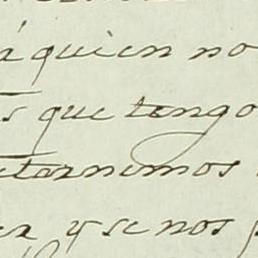 á quien no
s que tengo
eternemos
er y se nos p